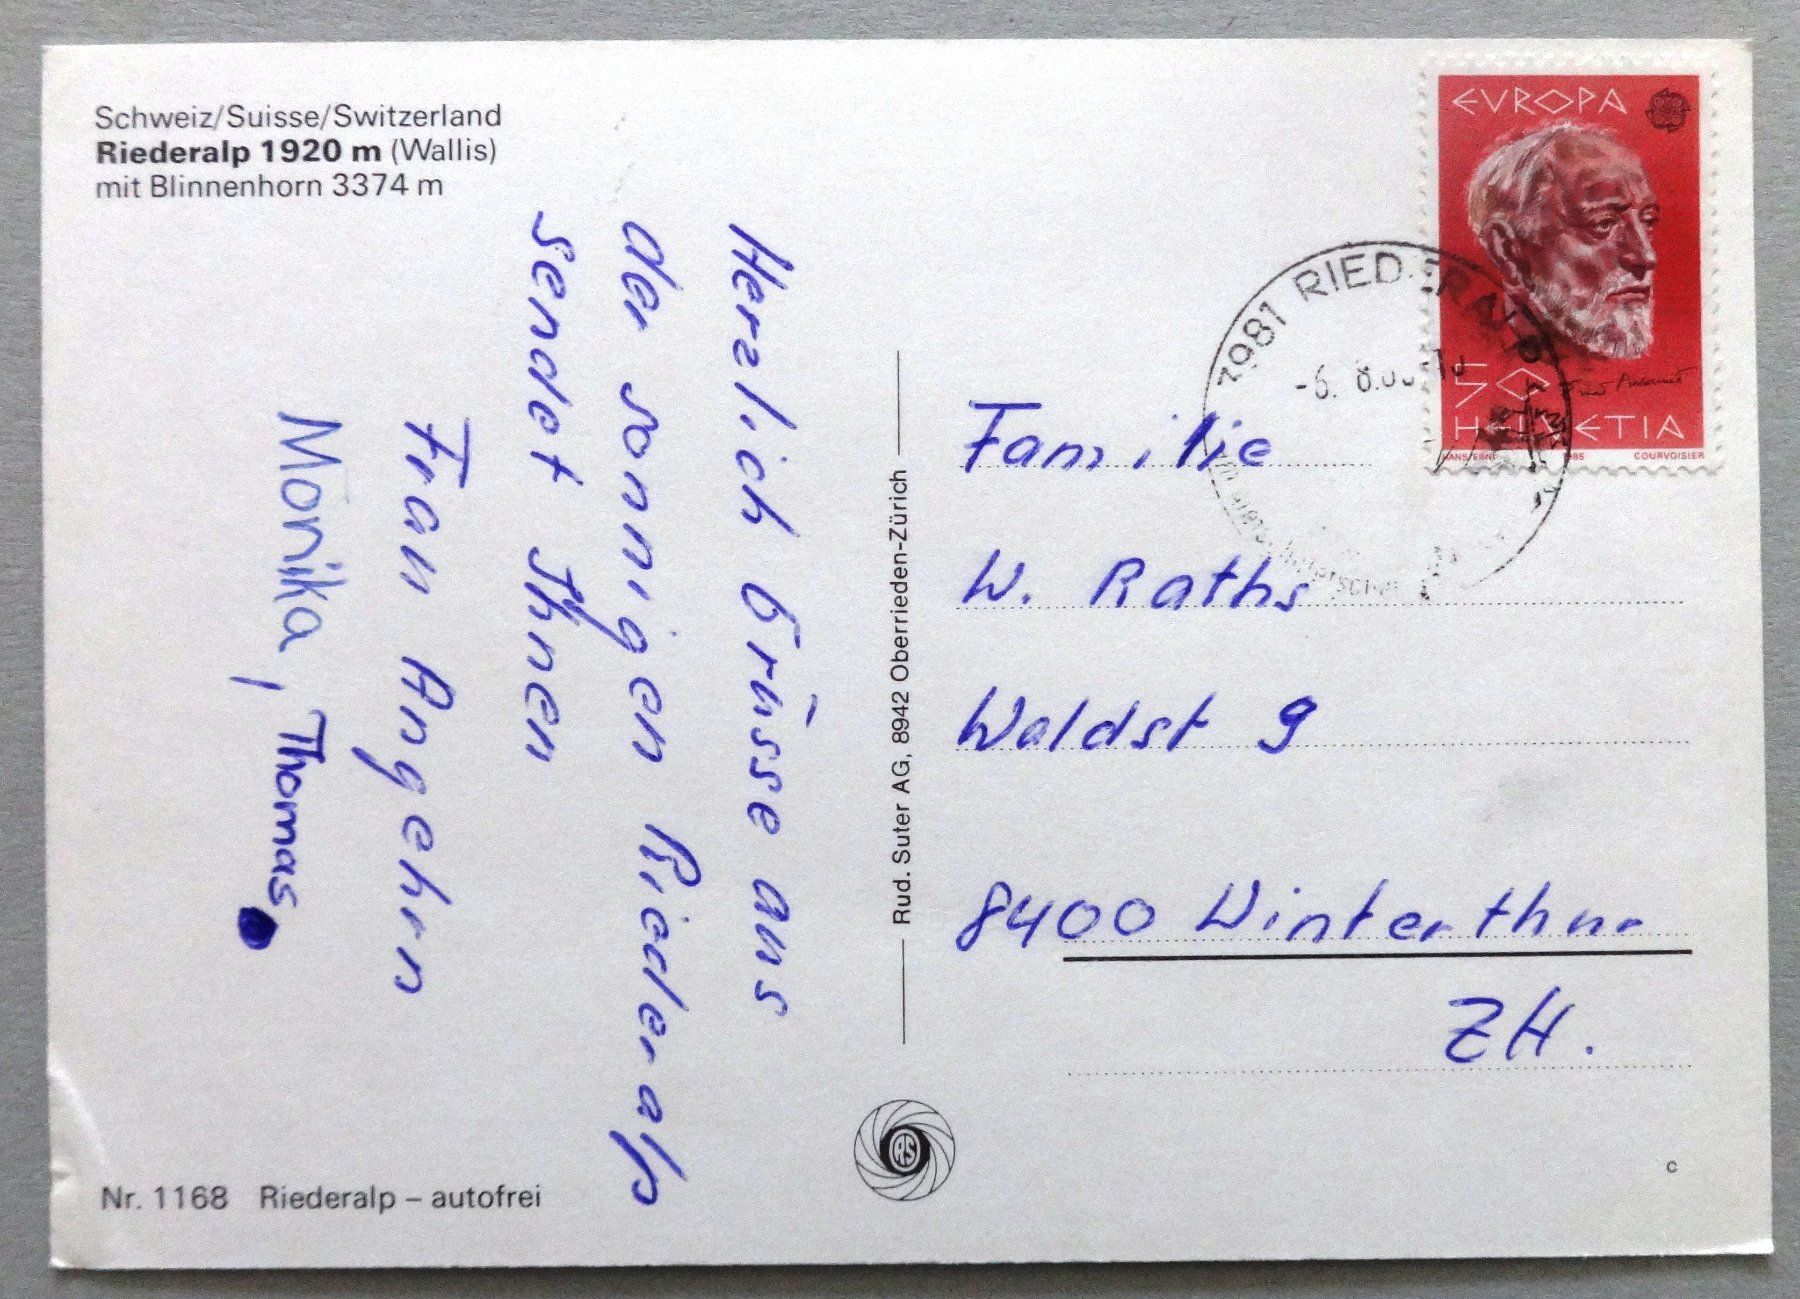 Schweiz/Suisse/Switzerland
Riederalp 1920 m (Wallis)
mit Blinnenhorn 3374 m
Herzlich Grüsse aus
der sonnigen Riederalp
sendet Ihnen
Frau Angehrn
Monika, Thomas
Nr. 1168 Riederalp – autofrei
Rud. Suter AG, 8942 Oberrieden-Zürich
RS
EVROPA
50
HELVETIA
HANS ERNI 1985 COURVOISIER
3981 RIEDERALP
-6. 8.
Familie
W. Raths
Waldst 9
8400 Winterthur
ZH.
c